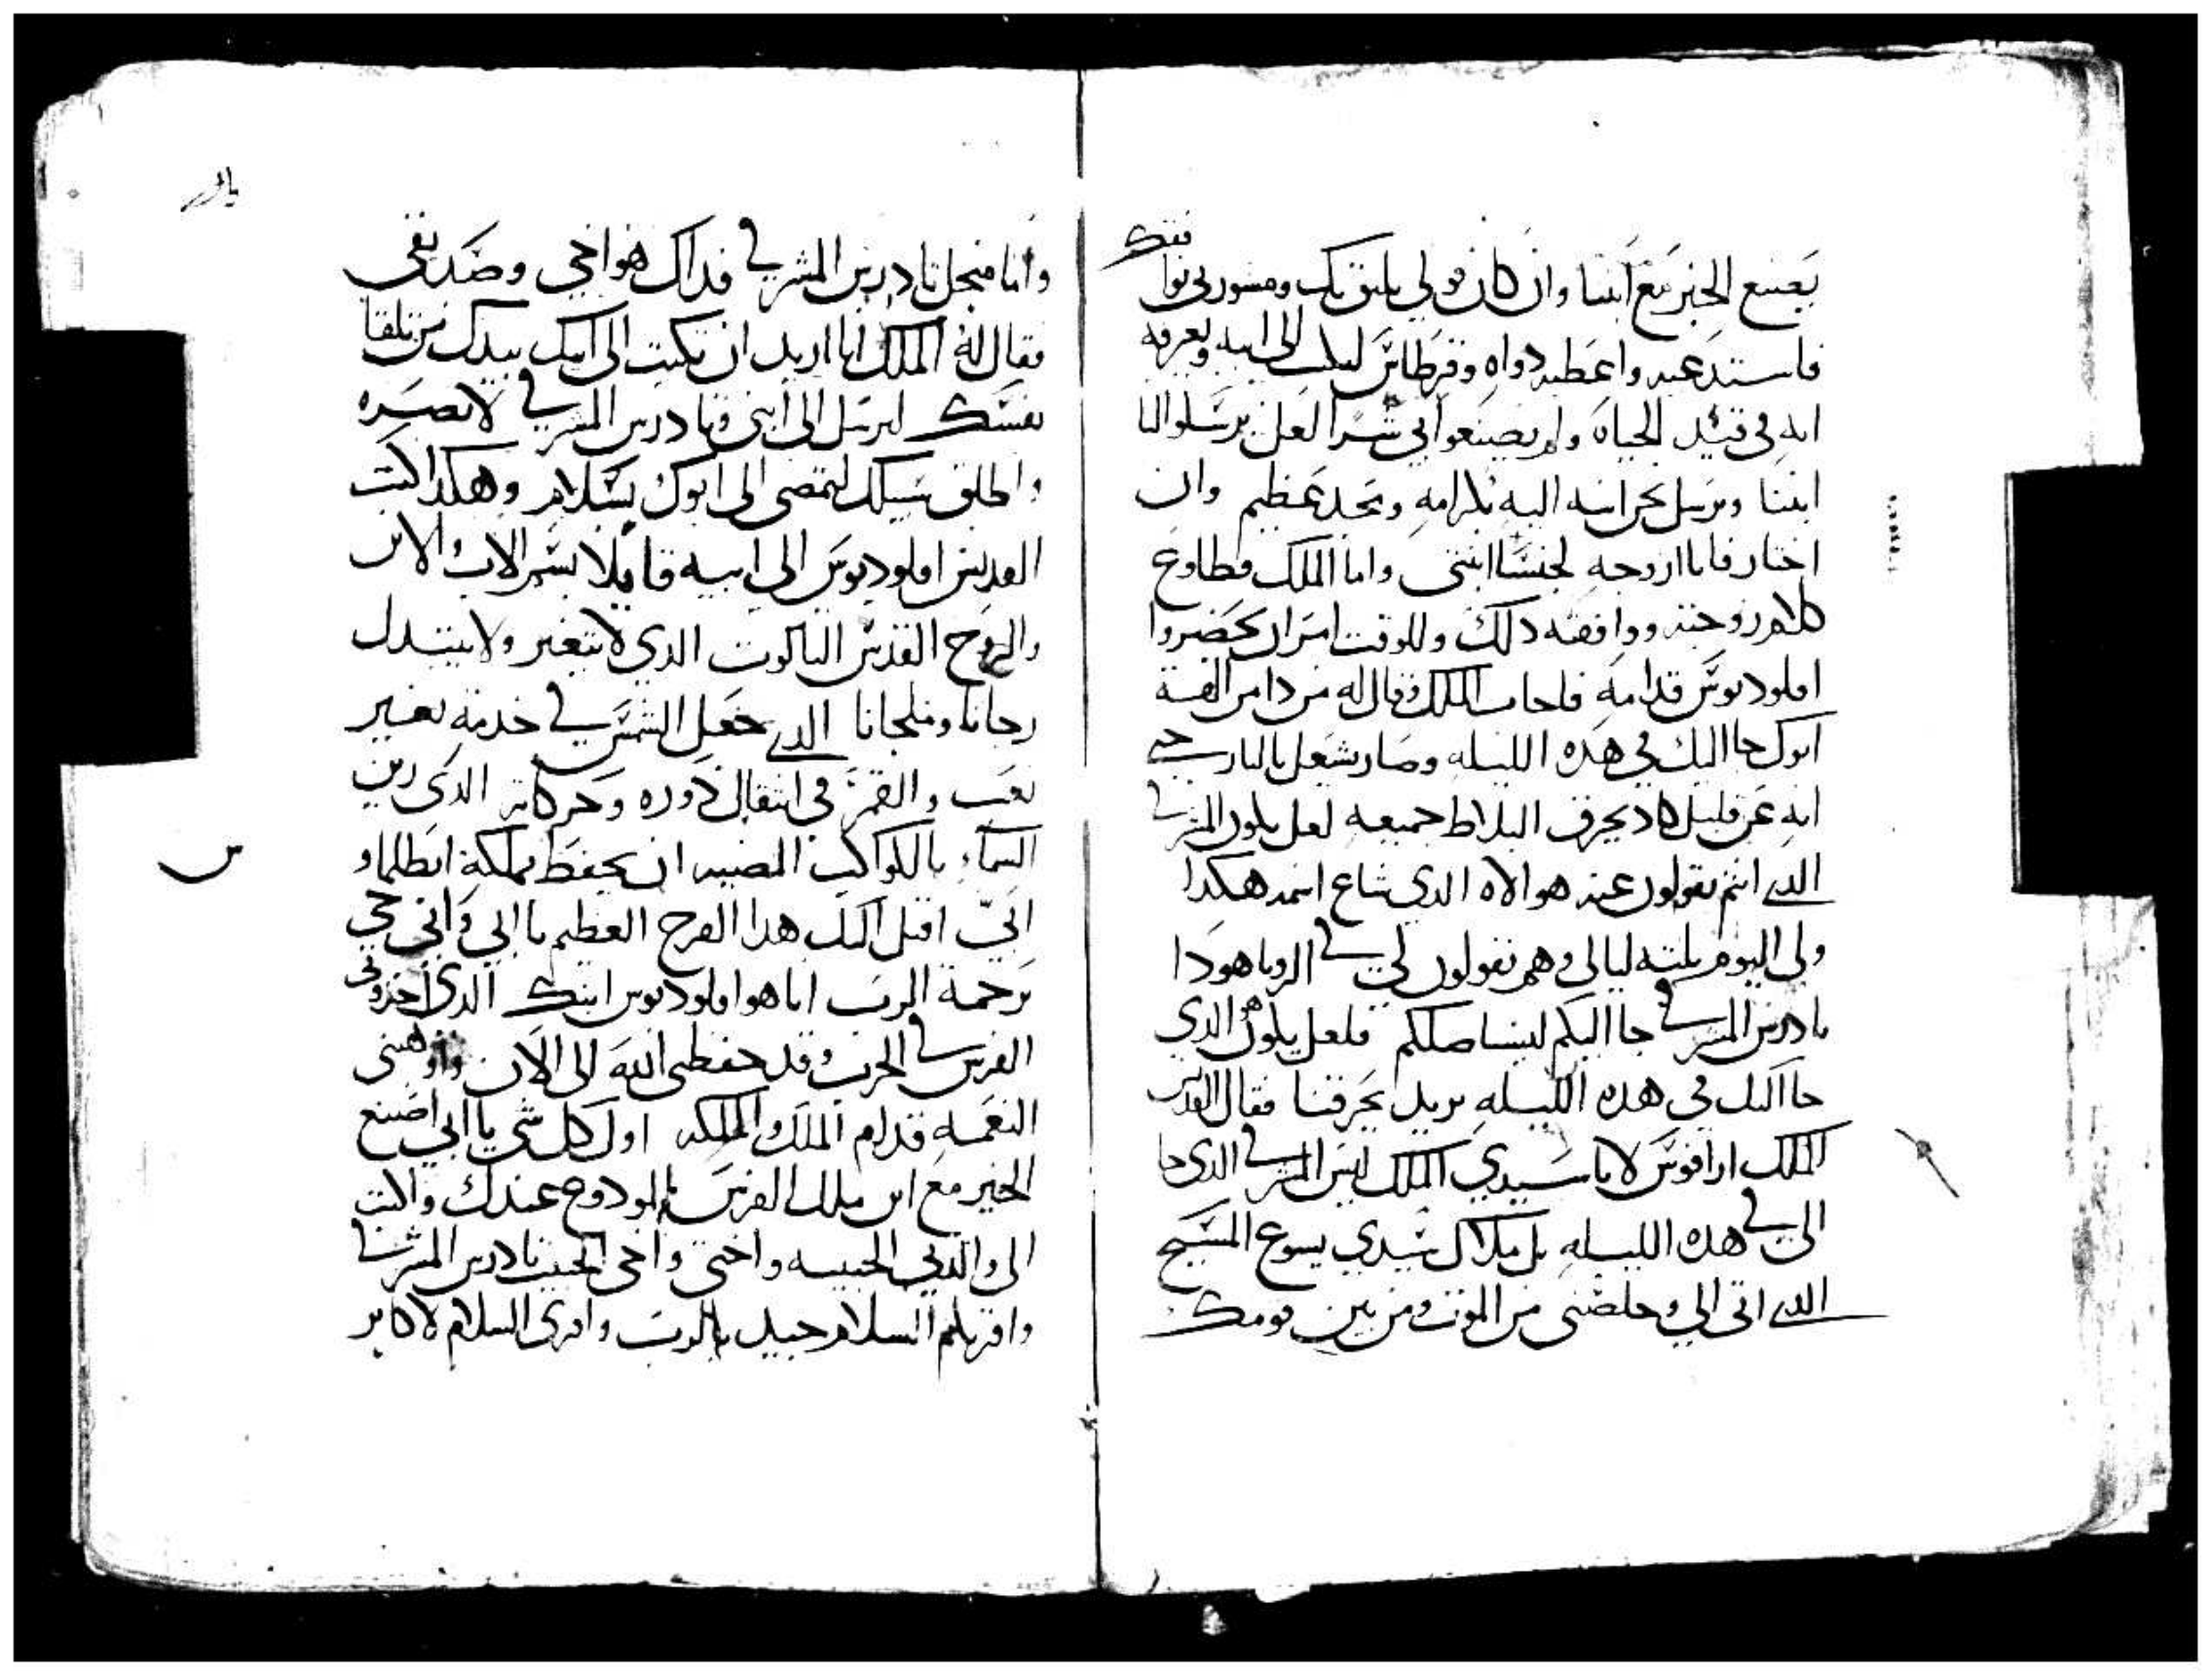 يصنع الخير مع ابننا وان كان قولي يليق بك ومشورتي توافقك
فاستدعيه واعطيه دواه وقرطاس ليكتب الى ابيه ويعرفه
انه في قيد الحياه ولم يصنعوا بي شرا لعل يرسلوا لنا
ابننا ونرسل نحن ابنه اليه بكرامه ومجد عظيم وان
اختار فانا ازوجه لجنسا ابنتي واما الملك فطاوع
كلام زوجته ووافقه دلك وللوقت امر ان يحضروا
اقلوديوس قدامه فاجاب الملك وقال له من دا من الهة
ابوك جا اليك في هده الليله وصار يشعل بالنار حتى
انه عن قليل كاد يحرق البلاط جميعه لعل يكون المشرقي
الدي انتم تقولون عنه هو الاه الدي شاع اسمه هكدا
ولي اليوم تلته ليالي وهم يقولون لي في الرويا هودا
تادرس المشرقي جا اليكم ليستاصلكم فلعل يكون هو الدي
جا اليك في هده الليله يريد يحرقنا فقال القديس
للملك ارافوس لا يا سيدي الملك ليس المشرقي الدي جا
الي في هده الليله بل ملاك سيدي يسوع المسيح
الدي اتى الي وخلصني من الموت ومن بين قومك
وانا من جل تادرس المشرقي فداك هو اخي وصديقي
فقال له الملك انا اريد ان تكتب الى ابيك بيدك من تلقا
نفسك ليرسل الى ابني وتادرس المشرقي لا يصره
واطلق سبيلك لتمضي الى ابوك بسلام وهكدا كتب
القديس اقلوديوس الى ابيه قايلا بسم الاب والابن
والروح القدس التالوت الدي لا يتغير ولا يتبدل
رجانا وملجانا الدي جعل الشمس في خدمة بغير
تعب والقمر في انتقال دوره وحركاته الدي زين
السماء بالكواكب المضيه ان يحفظ مملكة ابطلماوس
ابي اقبل اليك هدا الفرح العظيم يا ابي واني حي
برحمة الرب انا هو اقلوديوس ابنك الدي اخدوني
الفرس في الحرب وقد حفظني الله الى الان واوهبني
النعمه قدام الملك والملكه اول كل شي يا ابي اصنع
الخير مع ابن ملك الفرس المودوع عندك واكتب
الى والدتي الحبيبه واختي واخي الحبيب تادرس المشرقي
واقريكم السلام جميل بالرب واقري السلام لاكابر